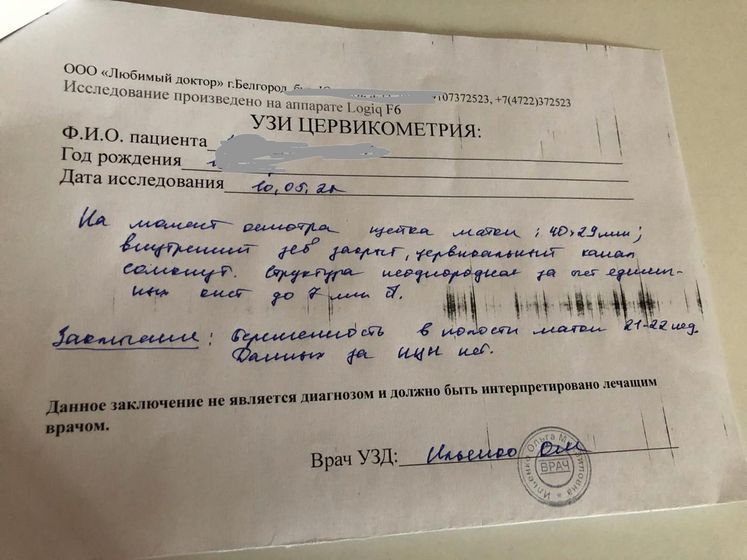 ООО «Любимый доктор» г.Белгород, 07372523, +7(4722)372523
Исследование произведено на аппарате Logiq F6
УЗИ ЦЕРВИКОМЕТРИЯ:
Ф.И.О. пациента
Год рождения
Дата исследования 10.05.21
На момент осмотра шейка матки: 40×29 мм;
внутренний зев закрыт, цервикальный канал
сомкнут. Структура неоднородная за счет единич-
ных кист до 7 мм
Заключение: Беременность в полости матки 21-22 нед.
Данных за ИЦН нет.
Данное заключение не является диагнозом и должно быть интерпретировано лечащим
врачом.
Врач УЗД: Ильенко О.М.
Ильенко Ольга ВРАЧ